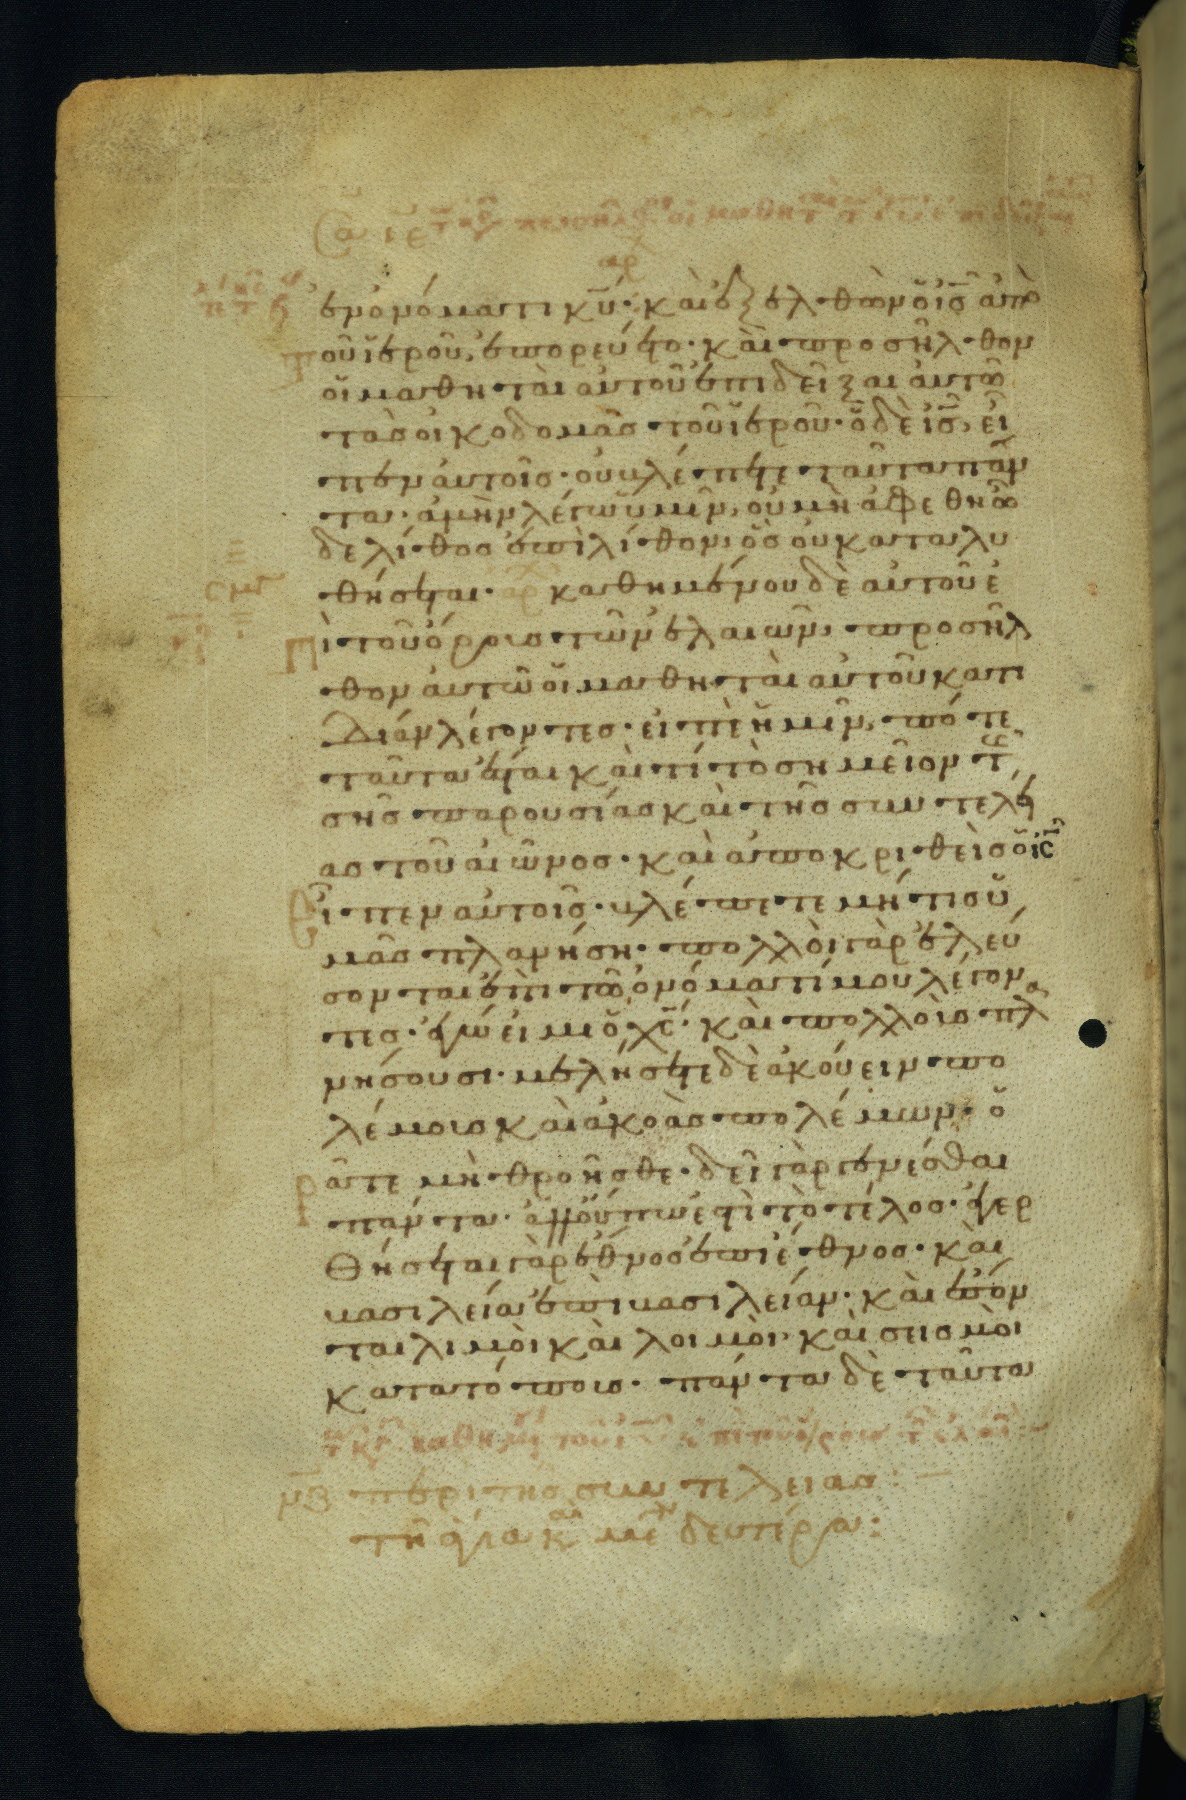 ἐν ὀνόματι κ̅υ̅· καὶ ἐξελθὼν ὁ ι̅ς̅ ἀπὸ
τοῦ ἱεροῦ, ἐπορεύετο· καὶ προσῆλθον
οἱ μαθηταὶ αὐτοῦ ἐπιδεῖξαι αὐτῶ
τὰς οἰκοδομὰς τοῦ ἱεροῦ· ὁ δὲ ι̅ς̅, εἶ
πεν αὐτοῖς· οὐ βλέπετε ταῦτα πάν
τα· ἀμὴν λέγω ὑμῖν, οὐ μὴ ἀφεθῆ ὧ
δε λίθος ἐπὶ λίθον· ὃς οὐ καταλυ
θήσεται· αρχ καθημένου δὲ αὐτοῦ ἐ
πὶ τοῦ ὄρους τῶν ἐλαιῶν, προσῆλ
θον αὐτῶ οἱ μαθηταὶ αὐτοῦ κατι
δίαν λέγοντες· εἰπὲ ἡμῖν, πότε
ταῦτα ἔσται καὶ τί τὸ σημεῖον τῆς
σῆς παρουσίας καὶ τῆς συντελεί
ας τοῦ αἰῶνος· καὶ ἀποκριθεὶς ὁ ι̅ς̅
εἶπεν αὐτοῖς· βλέπετε μή τις ὑ
μᾶς πλανήση· πολλοὶ γὰρ ἐλεύ
σονται ἐπὶ τῶ ὀνόματί μου λέγον
τες· ἐγώ εἰμι ὁ χ̅ς̅· καὶ πολλοὺς πλα
νήσουσι· μελήσετε δὲ ἀκούειν πο
λέμους καὶ ἀκοὰς πολέμων· ὁ
ρᾶτε μὴ θροῆσθε· δεῖ γὰρ γενέσθαι
πάντα· ἀλλ' οὔπω ἐστὶ τὸ τέλος· ἐγερ
θήσεται γὰρ ἔθνος ἐπὶ ἔθνος· καὶ
βασιλεία ἐπὶ βασιλείαν· καὶ ἔσον
ται λιμοὶ καὶ λοιμοὶ· καὶ σεισμοὶ
κατὰ τόπους· πάντα δὲ ταῦτα
μβ περὶ τῆς συντελείας:
τῆ ἁγία δευτέρα: